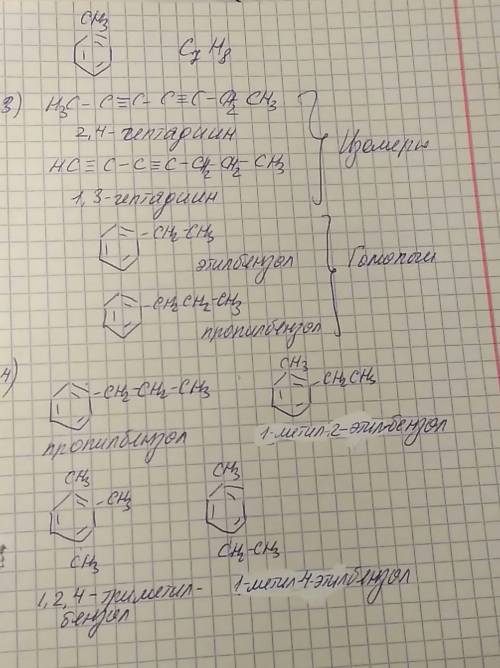 CH₃
C₇H₈
3) H₃C-C≡C-C≡C-CH₂-CH₃
2,4-гептадиин
HC≡C-C≡C-CH₂-CH₂-CH₃
1,3-гептадиин
Изомеры
-CH₂-CH₃
этилбензол
-CH₂CH₂-CH₃
пропилбензол
Гомологи
4) -CH₂-CH₂-CH₃
пропилбензол
CH₃
CH₂CH₃
1-метил-2-этилбензол
CH₃
-CH₃
CH₃
1,2,4-триметил-
бензол
CH₃
CH₂-CH₃
1-метил-4-этилбензол